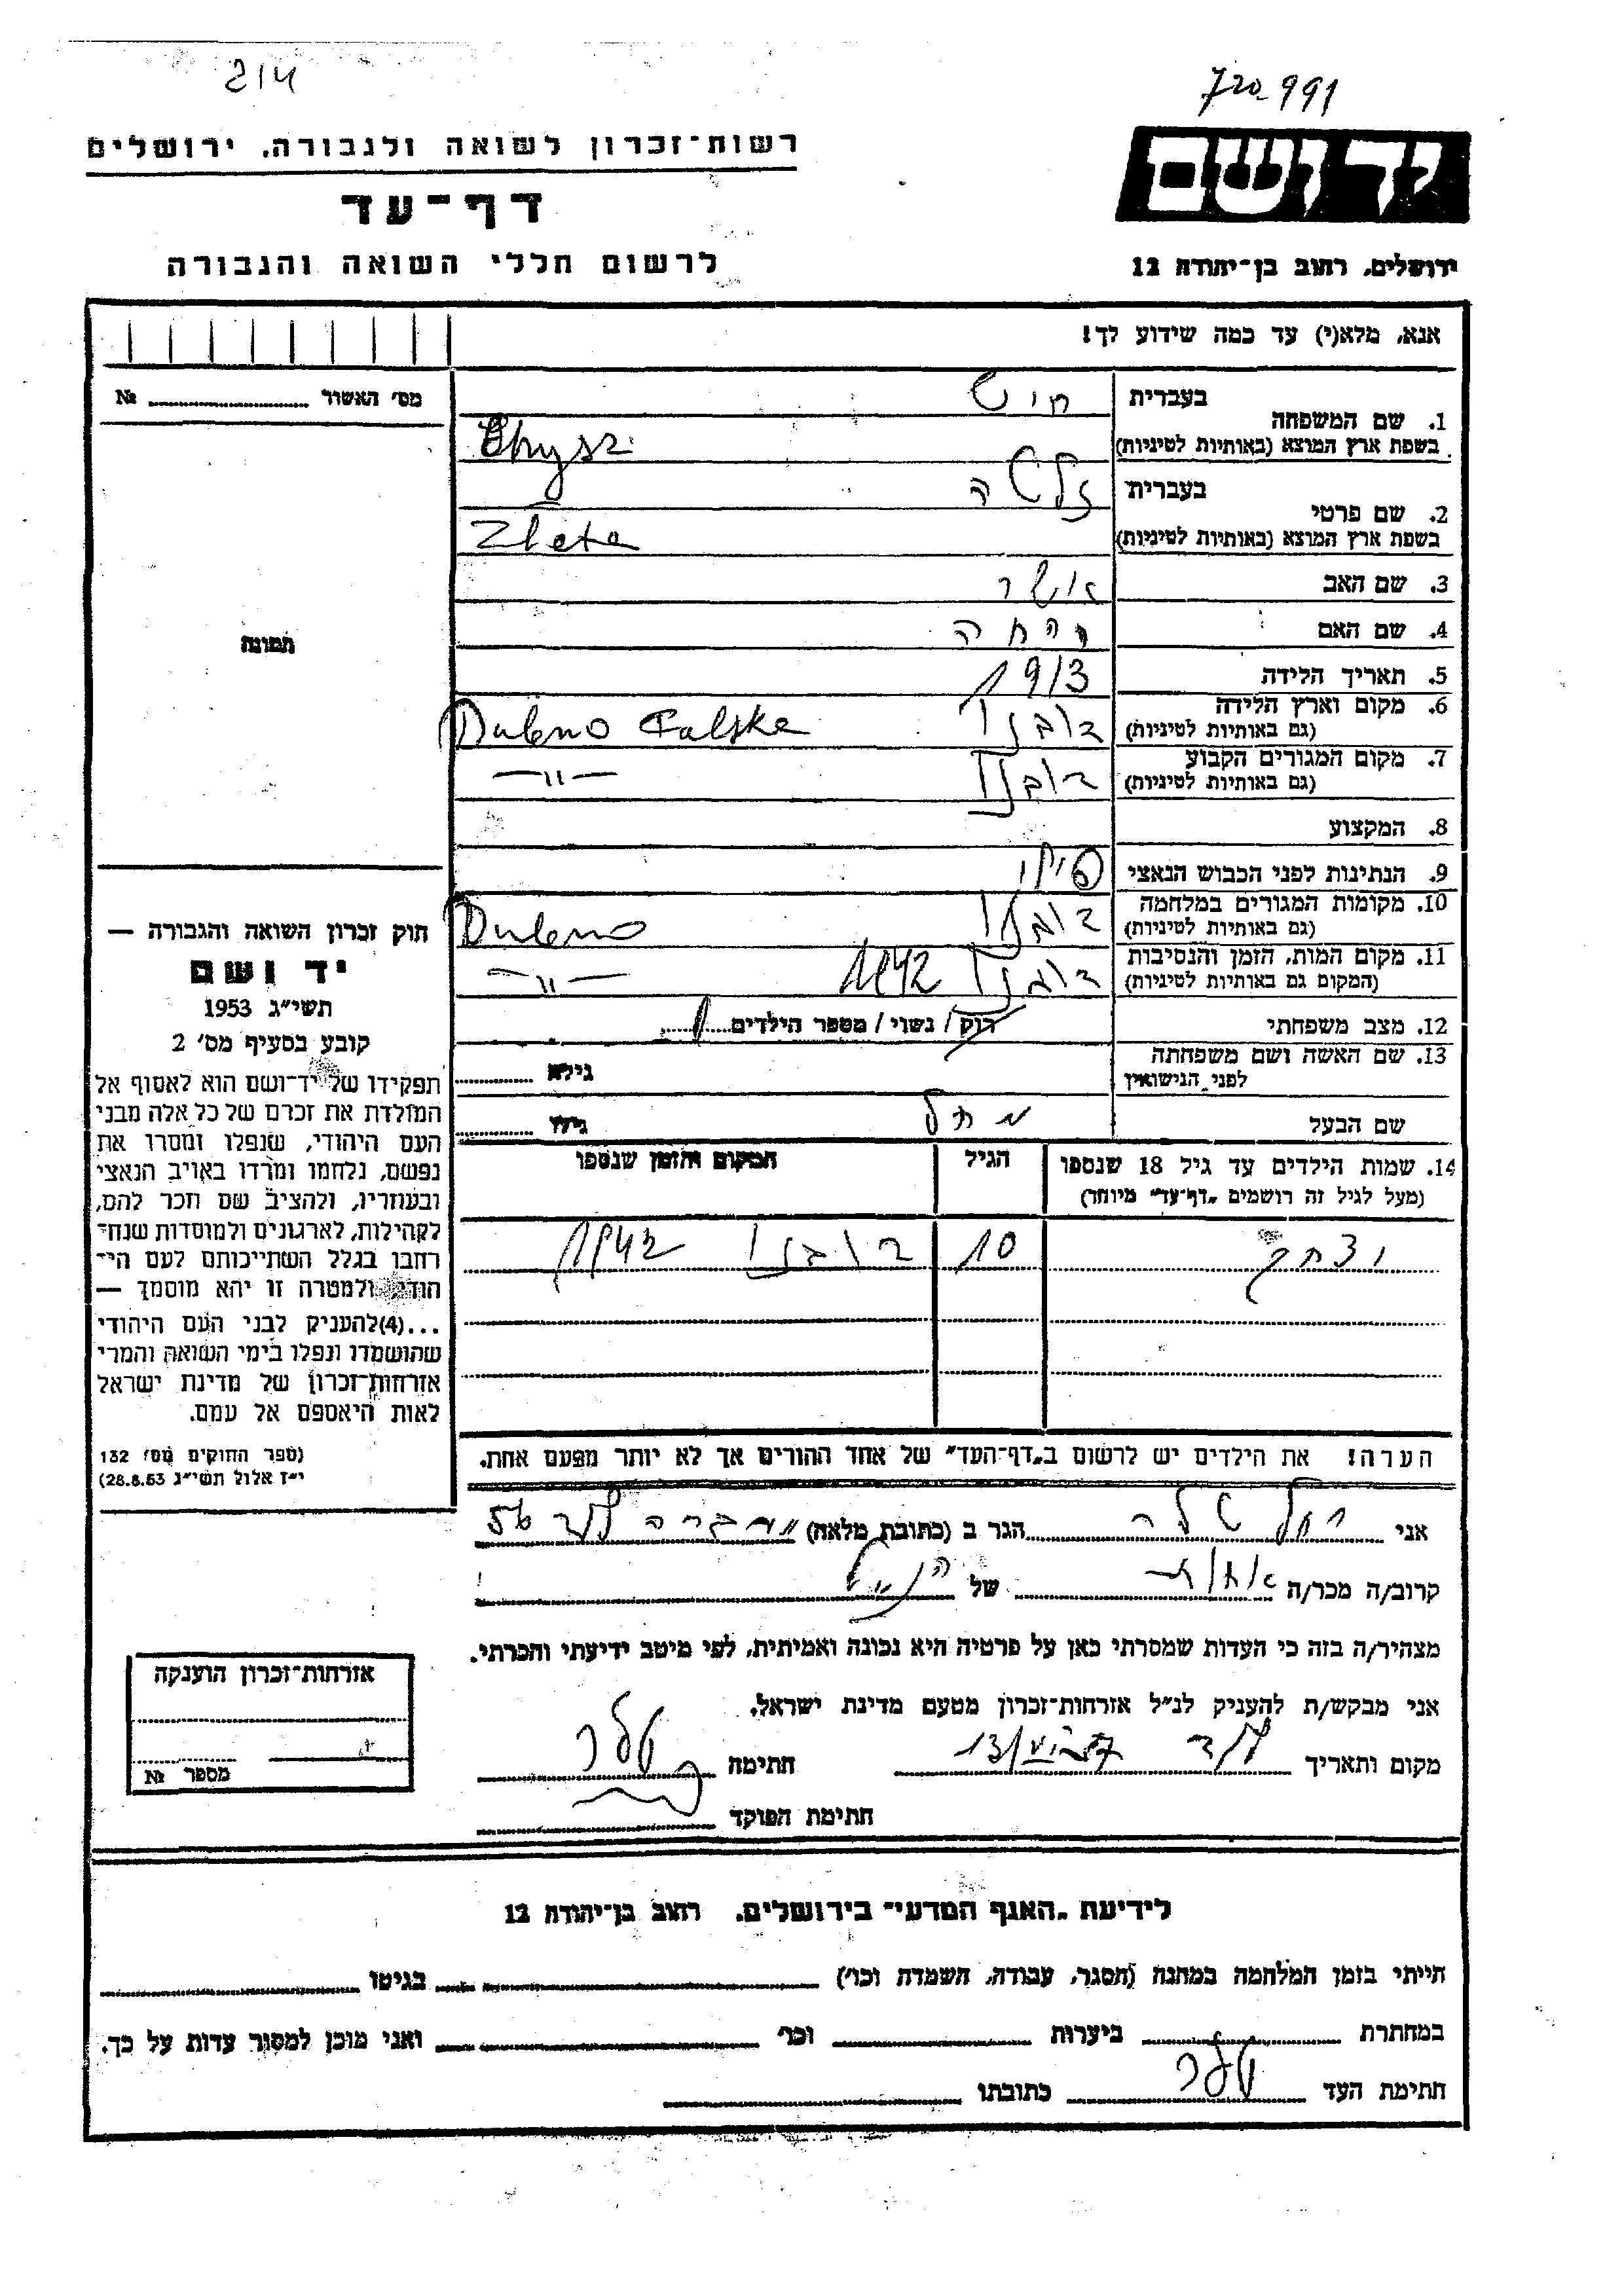 214
720-991
רשות־זכרון לשואה ולגבורה, ירושלים
יד ושם
דף־עד
לרשום חללי השואה והגבורה
ירושלים, רחוב בן־יהודה 12
אנא, מלא(י) עד כמה שידוע לך!
מס׳ האשור № 
1. שם המשפחה
בעברית חיש
בשפת ארץ המוצא (באותיות לטיניות) Chysz
2. שם פרטי
בעברית זלטה
בשפת ארץ המוצא (באותיות לטיניות) Zleta
3. שם האב אשר
4. שם האם
5. תאריך הלידה 1913
6. מקום וארץ הלידה דובנו Dubno
(גם באותיות לטיניות)
7. מקום המגורים הקבוע דובנו —״—
(גם באותיות לטיניות)
8. המקצוע
9. הנתינות לפני הכבוש הנאצי פולני
10. מקומות המגורים במלחמה דובנו Dubno
(גם באותיות לטיניות)
11. מקום המות, הזמן והנסיבות דובנו 1942 —״—
(המקום גם באותיות לטיניות)
12. מצב משפחתי רוק / נשוי / מספר הילדים 1
13. שם האשה ושם משפחתה
לפני הנישואין גילא
שם הבעל גילו
14. שמות הילדים עד גיל 18 שנספו הגיל המקום והזמן שנספו
(מעל לגיל זה רושמים „דף־עד״ מיוחד)
יצחק 10 דובנו 1942
הערה! את הילדים יש לרשום ב„דף־העד״ של אחד ההורים אך לא יותר מפעם אחת.
תמונה
חוק זכרון השואה והגבורה —
יד ושם
תשי״ג 1953
קובע בסעיף מס׳ 2
תפקידו של יד־ושם הוא לאסוף אל
המולדת את זכרם של כל אלה מבני
העם היהודי, שנפלו ומסרו את
נפשם, נלחמו ומרדו באויב הנאצי
ובעוזריו, ולהציב שם וזכר להם,
לקהילות, לארגונים ולמוסדות שנח־
רבו בגלל השתייכותם לעם הי־
הודי, ולמטרה זו יהא מוסמך —
...(4)להעניק לבני העם היהודי
שהושמדו ונפלו בימי השואה והמרי
אזרחות־זכרון של מדינת ישראל
לאות היאספם אל עמם.
(ספר החוקים מס׳ 132
י״ז אלול תשי״ג 28.8.53)
אני רחל טלר הגר ב (כתובת מלאה)
קרוב/ה מכר/ה אחות של הנ״ל
מצהיר/ה בזה כי העדות שמסרתי כאן על פרטיה היא נכונה ואמיתית, לפי מיטב ידיעתי והכרתי.
אני מבקש/ת להעניק לנ״ל אזרחות־זכרון מטעם מדינת ישראל.
מקום ותאריך לוד חתימה טלר
חתימת הפוקד
אזרחות־זכרון הוענקה
מספר №
לידיעת „האגף המדעי״ בירושלים, רחוב בן־יהודה 12
הייתי בזמן המלחמה במחנה (הסגר, עבודה, השמדה וכו׳) בגיטו
במחתרת ביערות וכו׳ ואני מוכן למסור עדות על כך.
חתימת העד טלר כתובתו